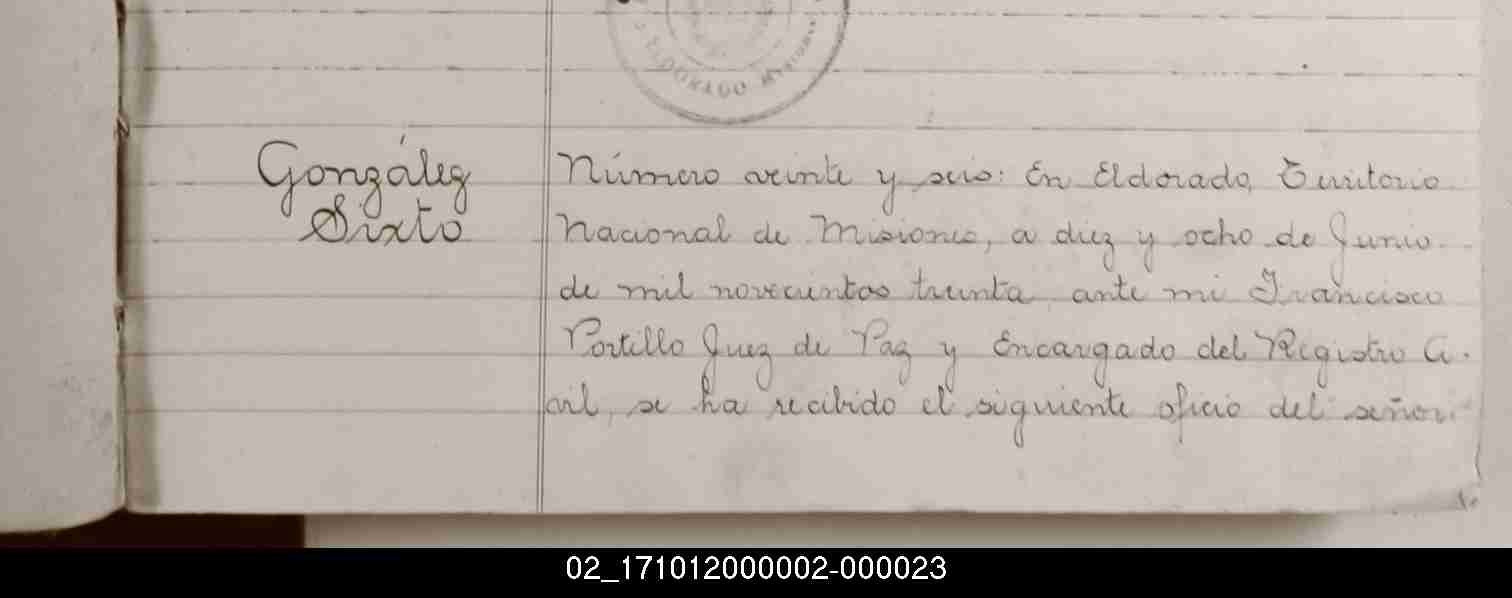 ELDORADO MISIONES
González
Sixto
Número veinte y seis: En Eldorado, Territorio
Nacional de Misiones, a diez y ocho de Junio
de mil novecientos treinta, ante mi Francisco
Portillo Juez de Paz y Encargado del Registro Ci-
vil, se ha recibido el siguiente oficio del señor
02_171012000002-000023